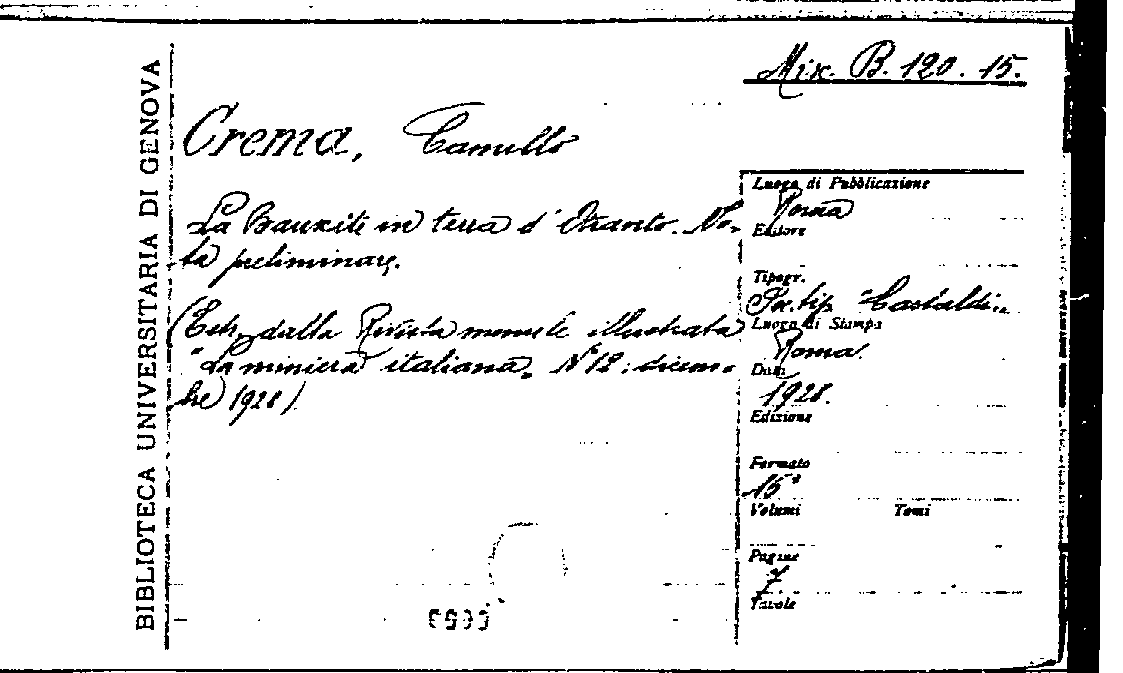 BIBLIOTECA UNIVERSITARIA DI GENOVA
Mix. B. 120. 15.
Crema, Camillo
La Bauxiti in terra d'Otranto. No-
ta preliminare.
(Estr. dalla Rivista mensile illustrata
"La miniera italiana" N° 12: dicem-
bre 1928)
Luogo di Pubblicazione
Roma
Editore
Tipogr.
Soc. tip. Castaldi
Luogo di Stampa
Roma
Data
1928.
Edizione
Formato
15°
Volumi Tomi
Pagine
7.
Tavole